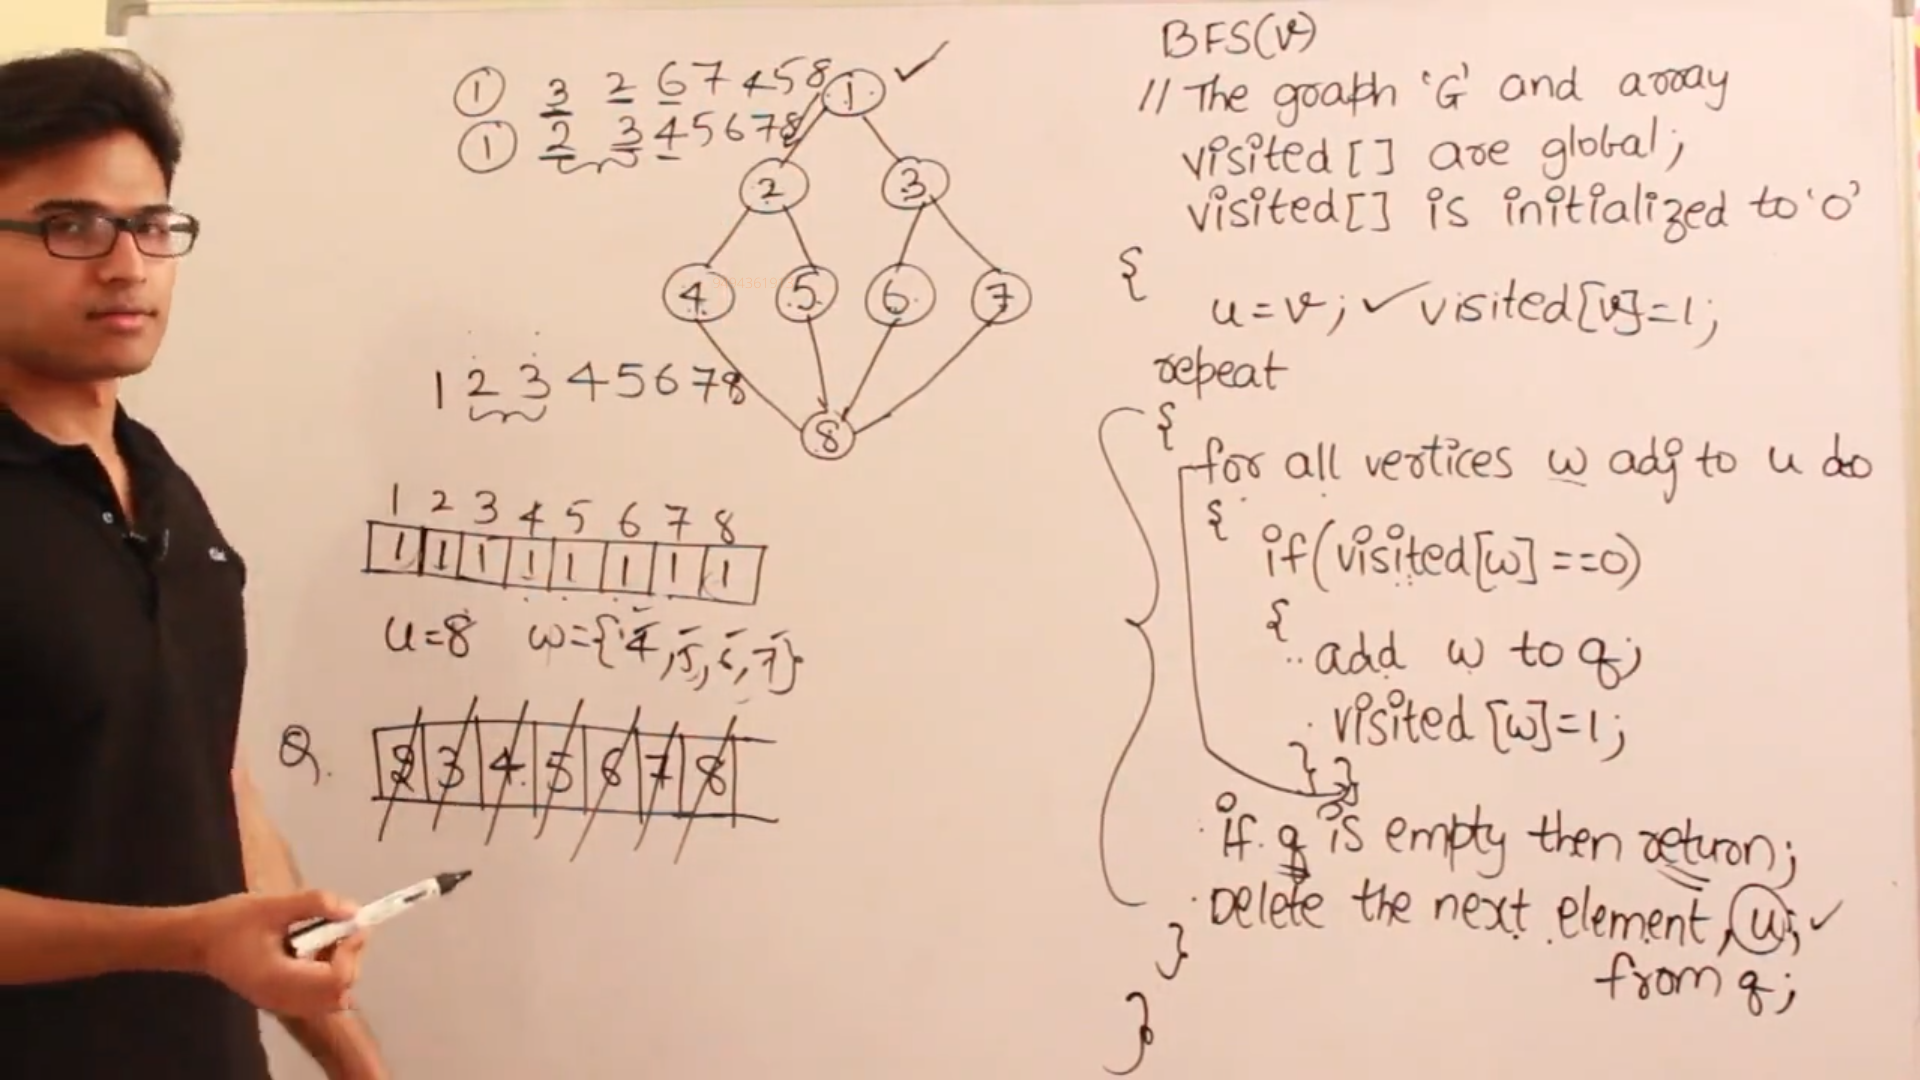 1 3 2 6 7 4 5 8
1 2 3 4 5 6 7 8
1
2 3
4 5 6 7
8
1 2 3 4 5 6 7 8
1 2 3 4 5 6 7 8
1 1 1 1 1 1 1 1
u=8 w={4,5,6,7}
Q. 2 3 4 5 6 7 8
BFS(v)
// The graph 'G' and array
visited [ ] are global;
visited [ ] is initialized to '0'
{
u = v; ✓ visited [v]=1;
repeat
{
for all vertices w adj to u do
{
if(visited[w]==0)
{
add w to q;
visited [w]=1;
} }
if q is empty then return;
Delete the next element, u; ✓
from q;
}
}